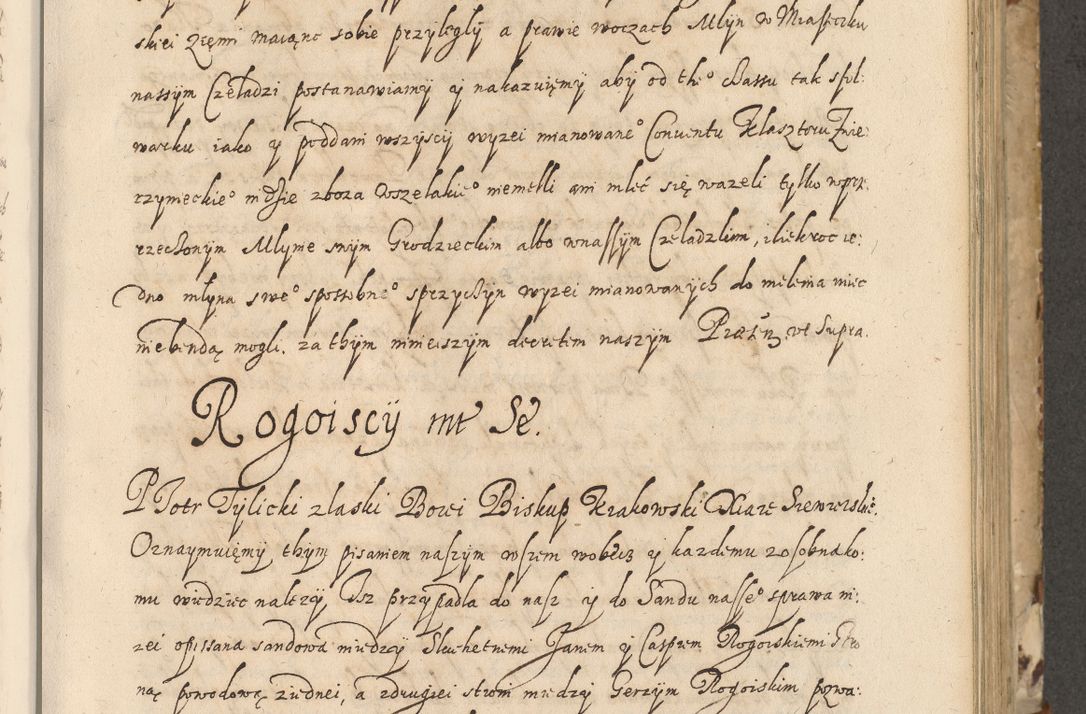 skiei ziemi maiąnc sobie przyległy a prawie woczach Młyn w Miasteczku
naszym Czeladzi postanawiamy y nakazuięmy aby od the° czassu tak s fol:
warku iako y poddani wszyscy wyzei mianowane° Conventu Klasztoru Zwie:
rzynieckie° nigdzie zboza wszelakie° niemełli ani mleć się wazeli tylko wprz:
rzeczonym Młynie swym Grodzieckim albo wnaszym Czeladzkim, ilekroc ie:
dno młyna swe° sposobne° sprzyczyn wyzei mianowanych do melenia miec
niebendą mogli. za thym ninieiszym decretem naszym Præsen. ut supra.
Rogoiscy int Se.
Piotr Tylicki z laski Bozei Biskup Krakowski Xiąze Siewierskie.
Oznaymuięmy thym pisaniem naszym wszem wobecz y kazdemu zosobnako:
mu wiedziec nalezy, Isz przypadla do nasz y do Sandu nasze° sprawa ni:
zei opissana sandowa miedzy Slachetnemi Janem y Casprem Rogoiskiemi Stro
ną powodową ziednei, a zdrugiei stroni miedzy Gerzym Rogoiskim pozwa: